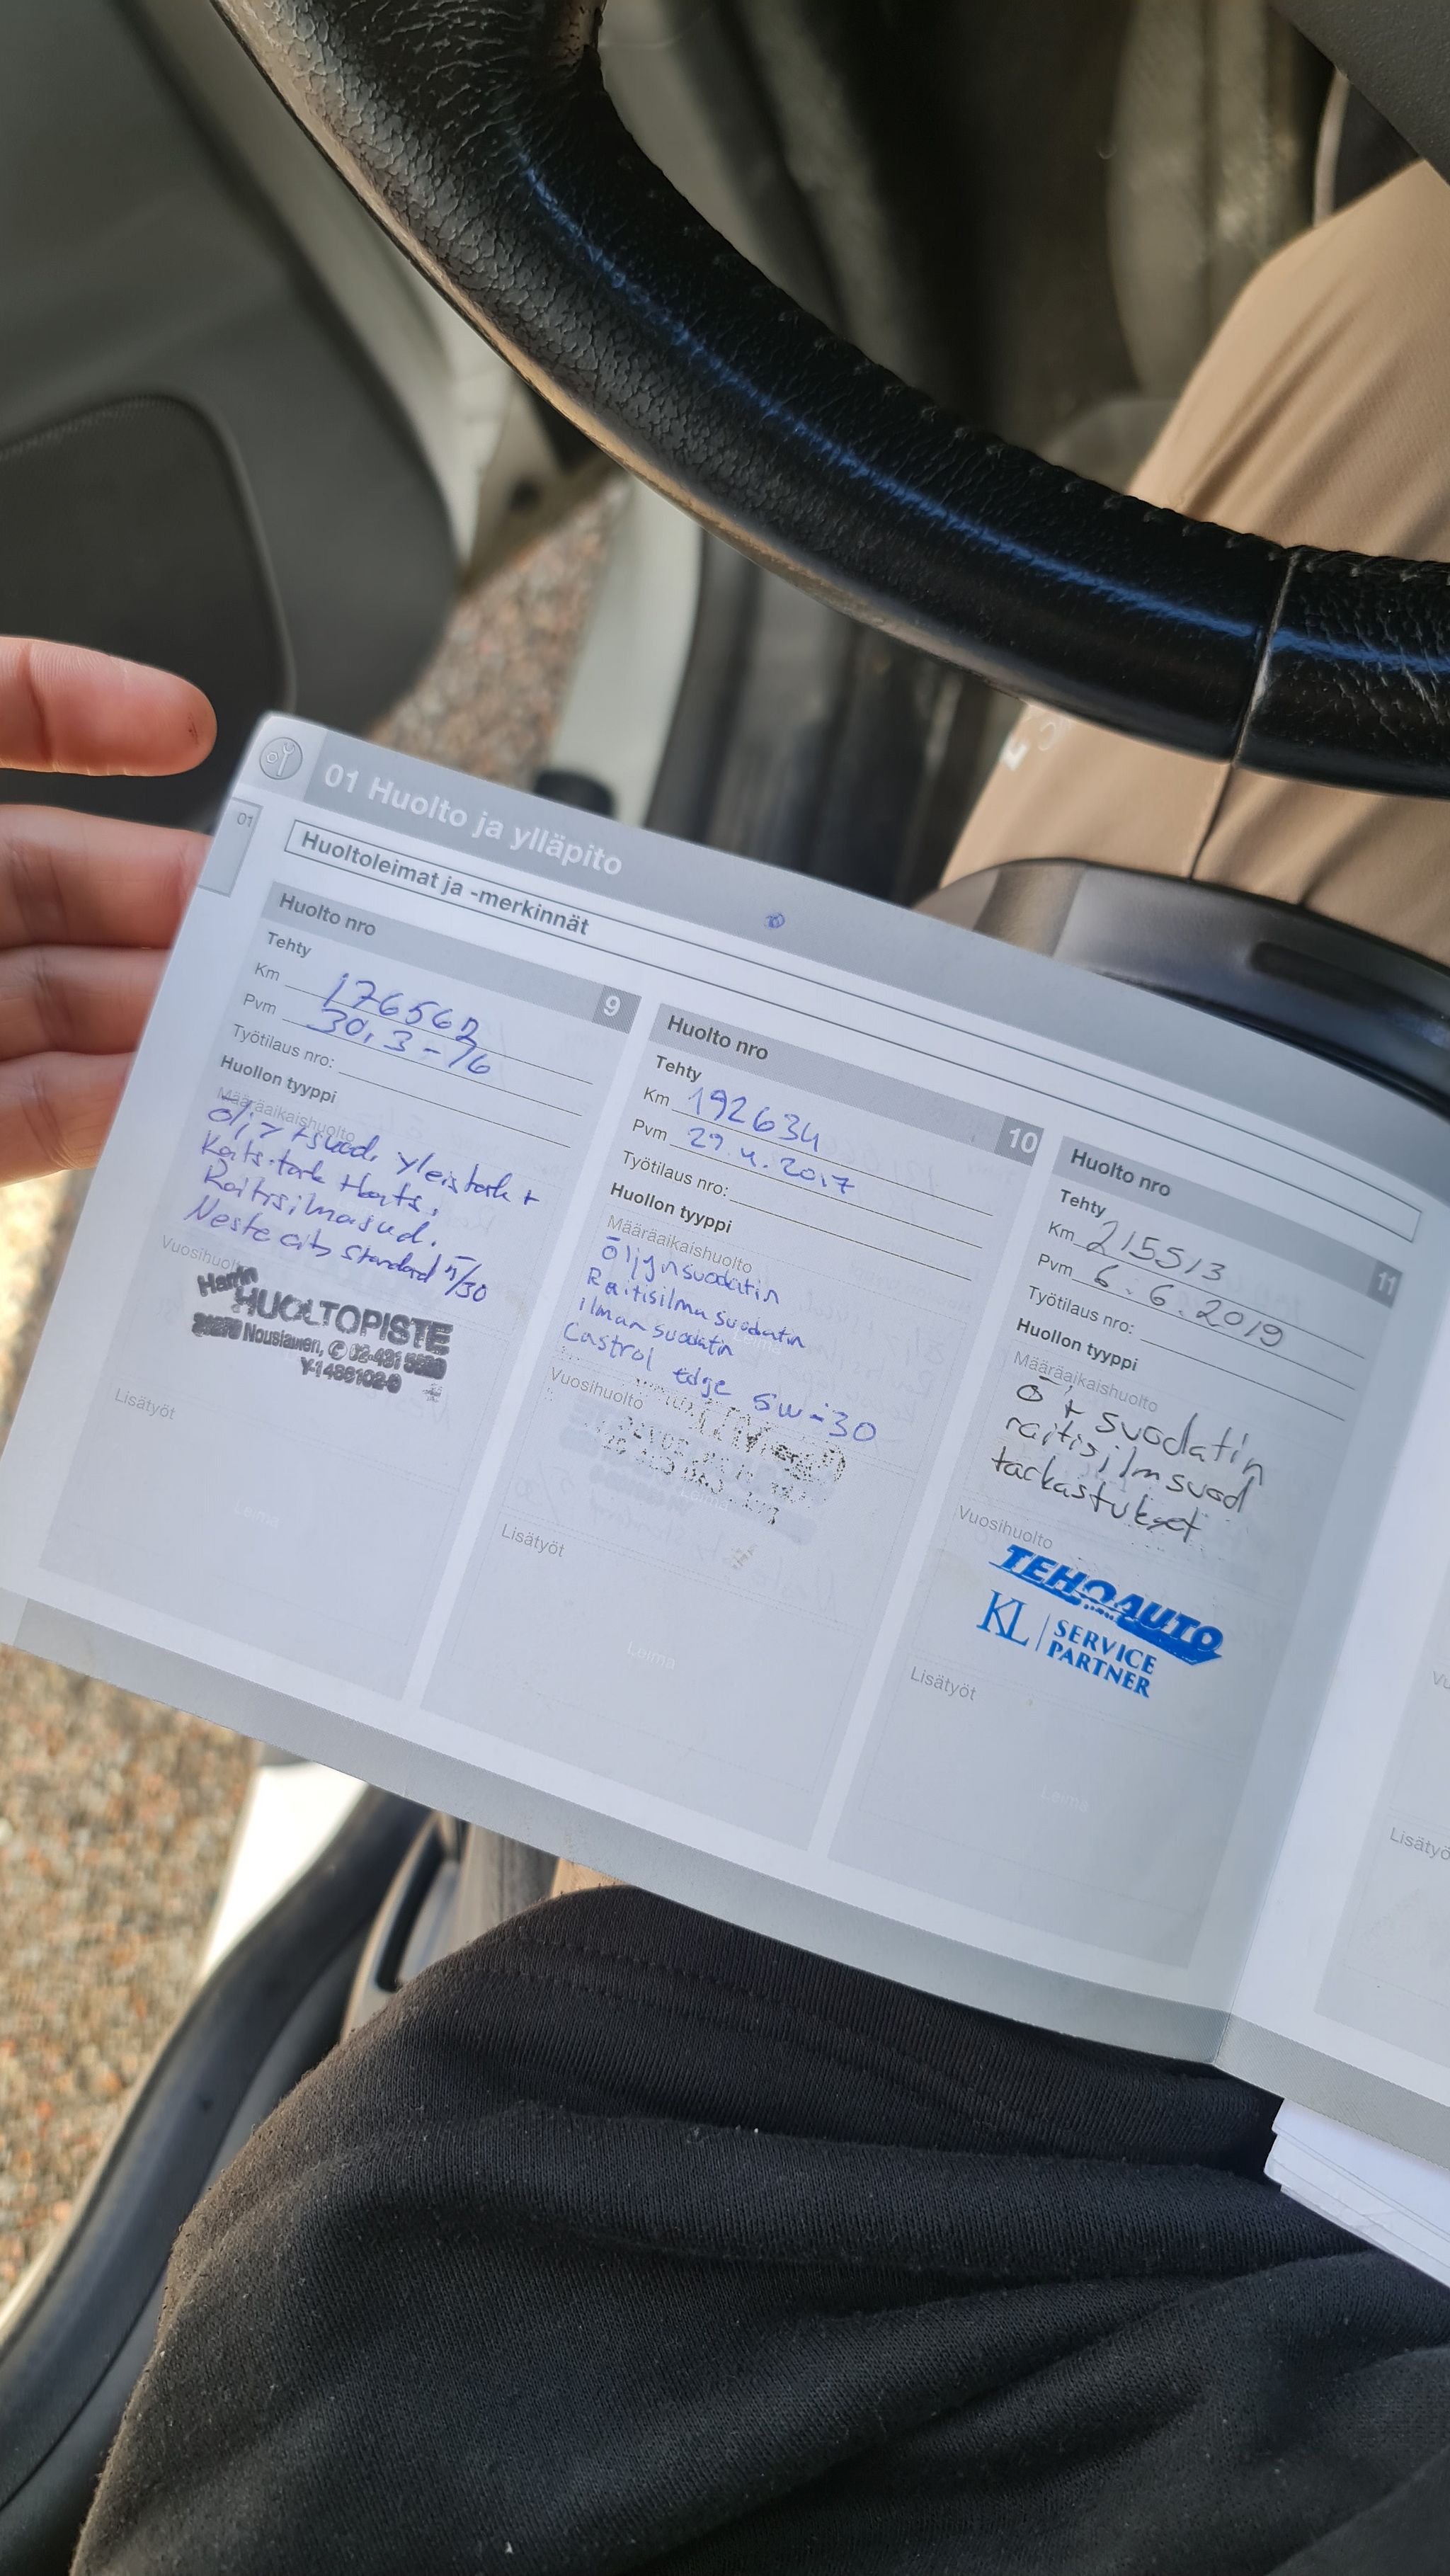 01 Huolto ja ylläpito
01
Huoltoleimat ja -merkinnät
Huolto nro 9
Tehty
Km 176562
Pvm 30.3-16
Työtilaus nro:
Huollon tyyppi
Määräaikaishuolto
Öljy + suod. yleistark +
Kats.tark + kats,
Raitisilmasud.
Neste city standard 5/30
Vuosihuolto
Harrin
HUOLTOPISTE
Nousiainen,
Lisätyöt
Leima
Huolto nro 10
Tehty
Km 192634
Pvm 29.4.2017
Työtilaus nro:
Huollon tyyppi
Määräaikaishuolto
Öljynsuodatin
Raitisilmasuodatin
ilmansuodatin
Castrol edge 5w-30
Vuosihuolto
Lisätyöt
Leima
Huolto nro 11
Tehty
Km 215513
Pvm 6.6.2019
Työtilaus nro:
Huollon tyyppi
Määräaikaishuolto
Ö + suodatin
raitisilmsuod
tarkastukset
Vuosihuolto
TEHOAUTO
KL SERVICE
PARTNER
Lisätyöt
Leima
Lisätyö